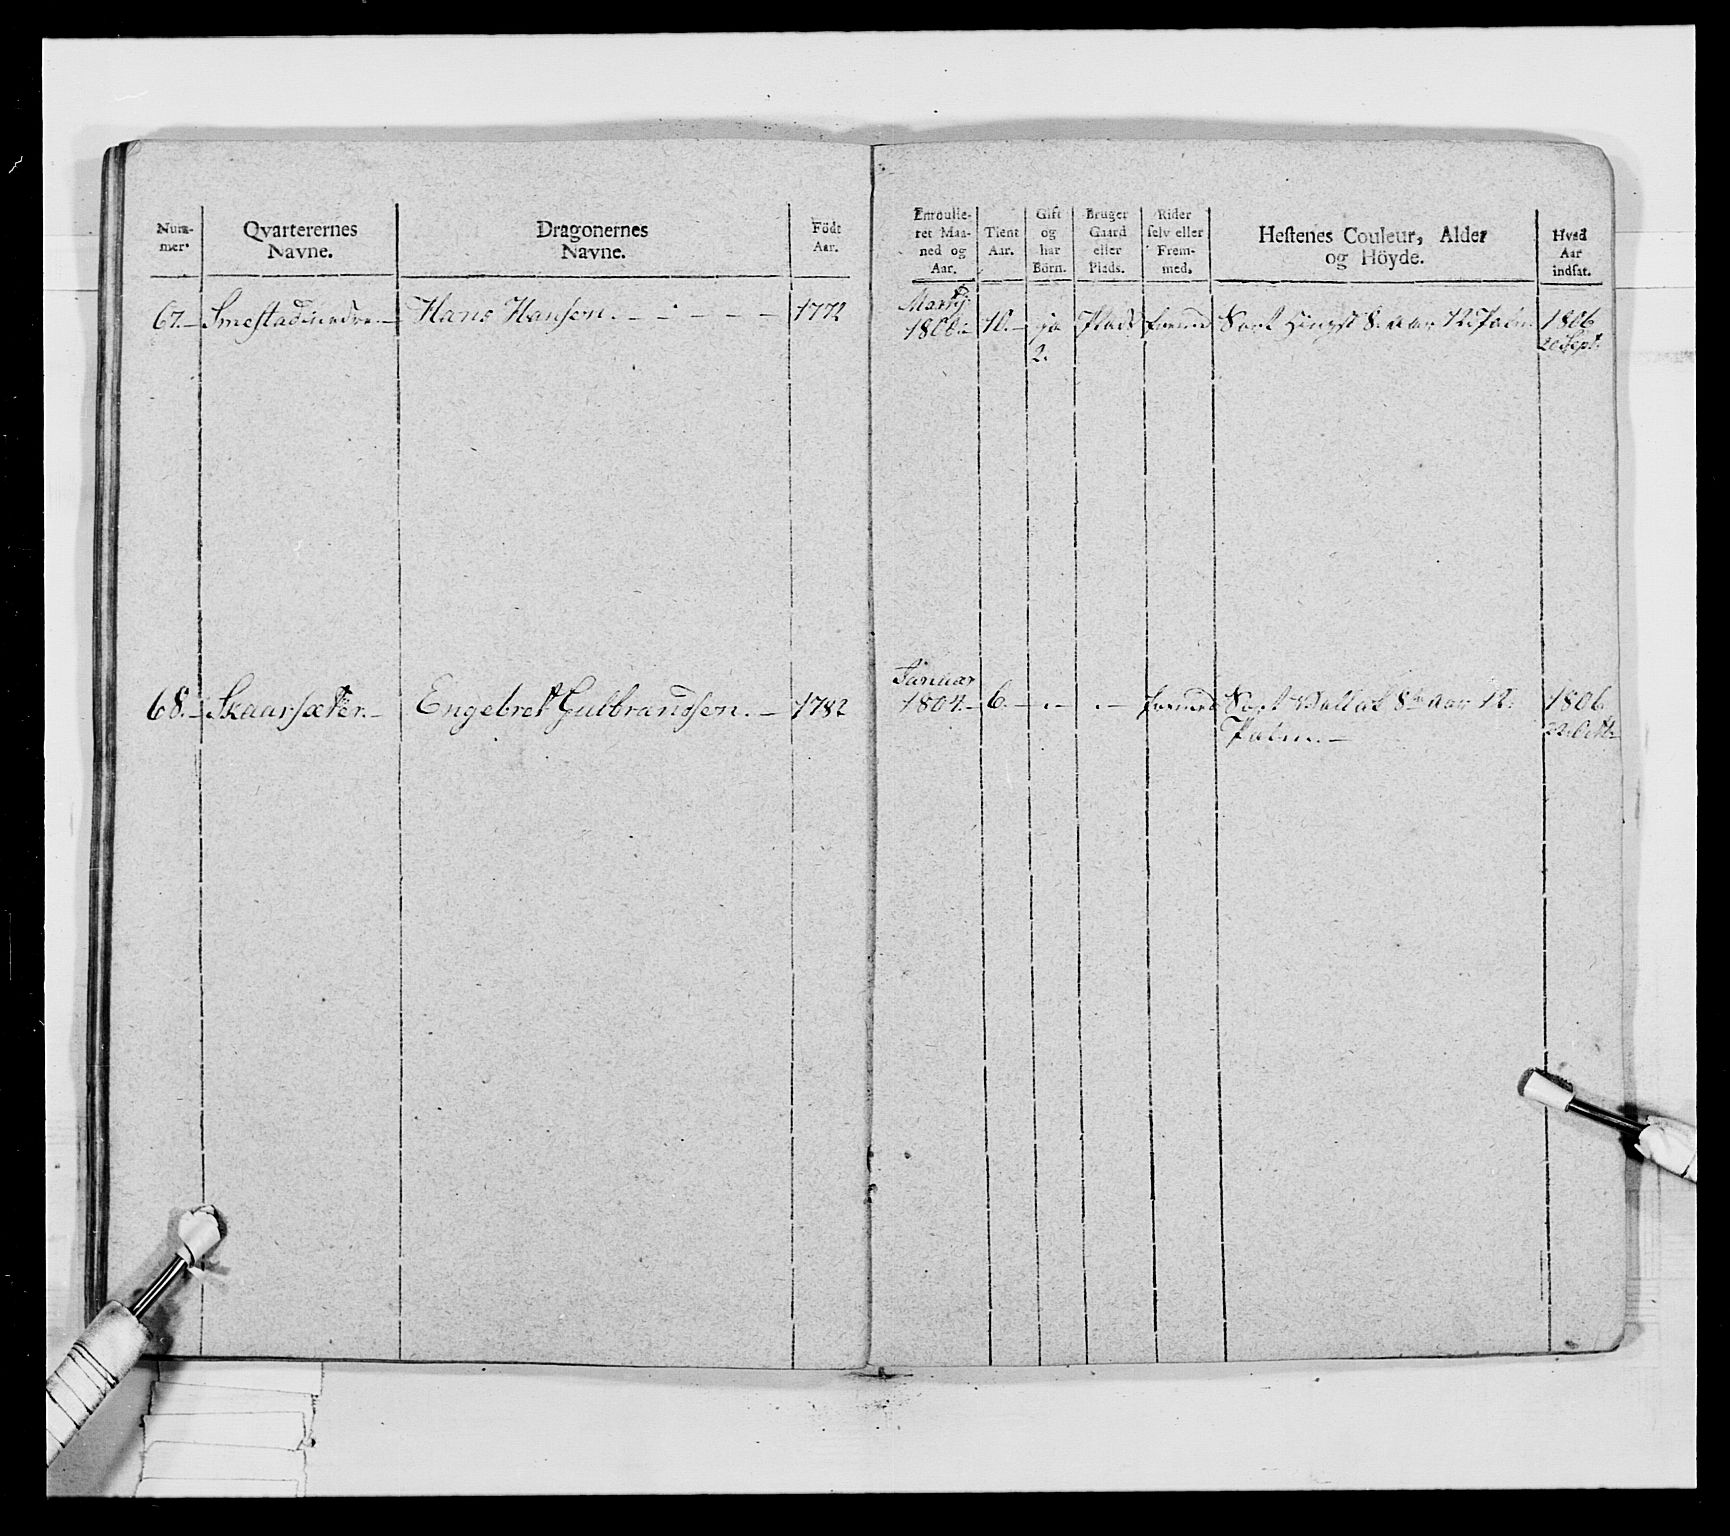 Num-
mer.
Qvarterernes
Navne.
Dragonernes
Navne.
Födt
Aar.
Enroulie-
ret Maa-
ned og
Aar.
Tient
Aar.
Gift
og
har
Börn.
Bruger
Gaard
eller
Plads.
Rider
selv eller
Frem-
med.
Hestenes Couleur, Alder
og Höyde.
Hvad
Aar
indsat.
67.
Smestad nedre.
Hans Hansen.
1772
Martij
1800.
10.
ja
2.
Plads
fremed
Sort Hingst 8. Aar 12. Palm.
1806
20 Sept.
68.
Skaarsæter.
Engebret Gulbrandsen.
1782
Januar
1804.
6.
fremed
Sort Vallak 8 Aar 12.
Palm.
1806.
22. Oct.